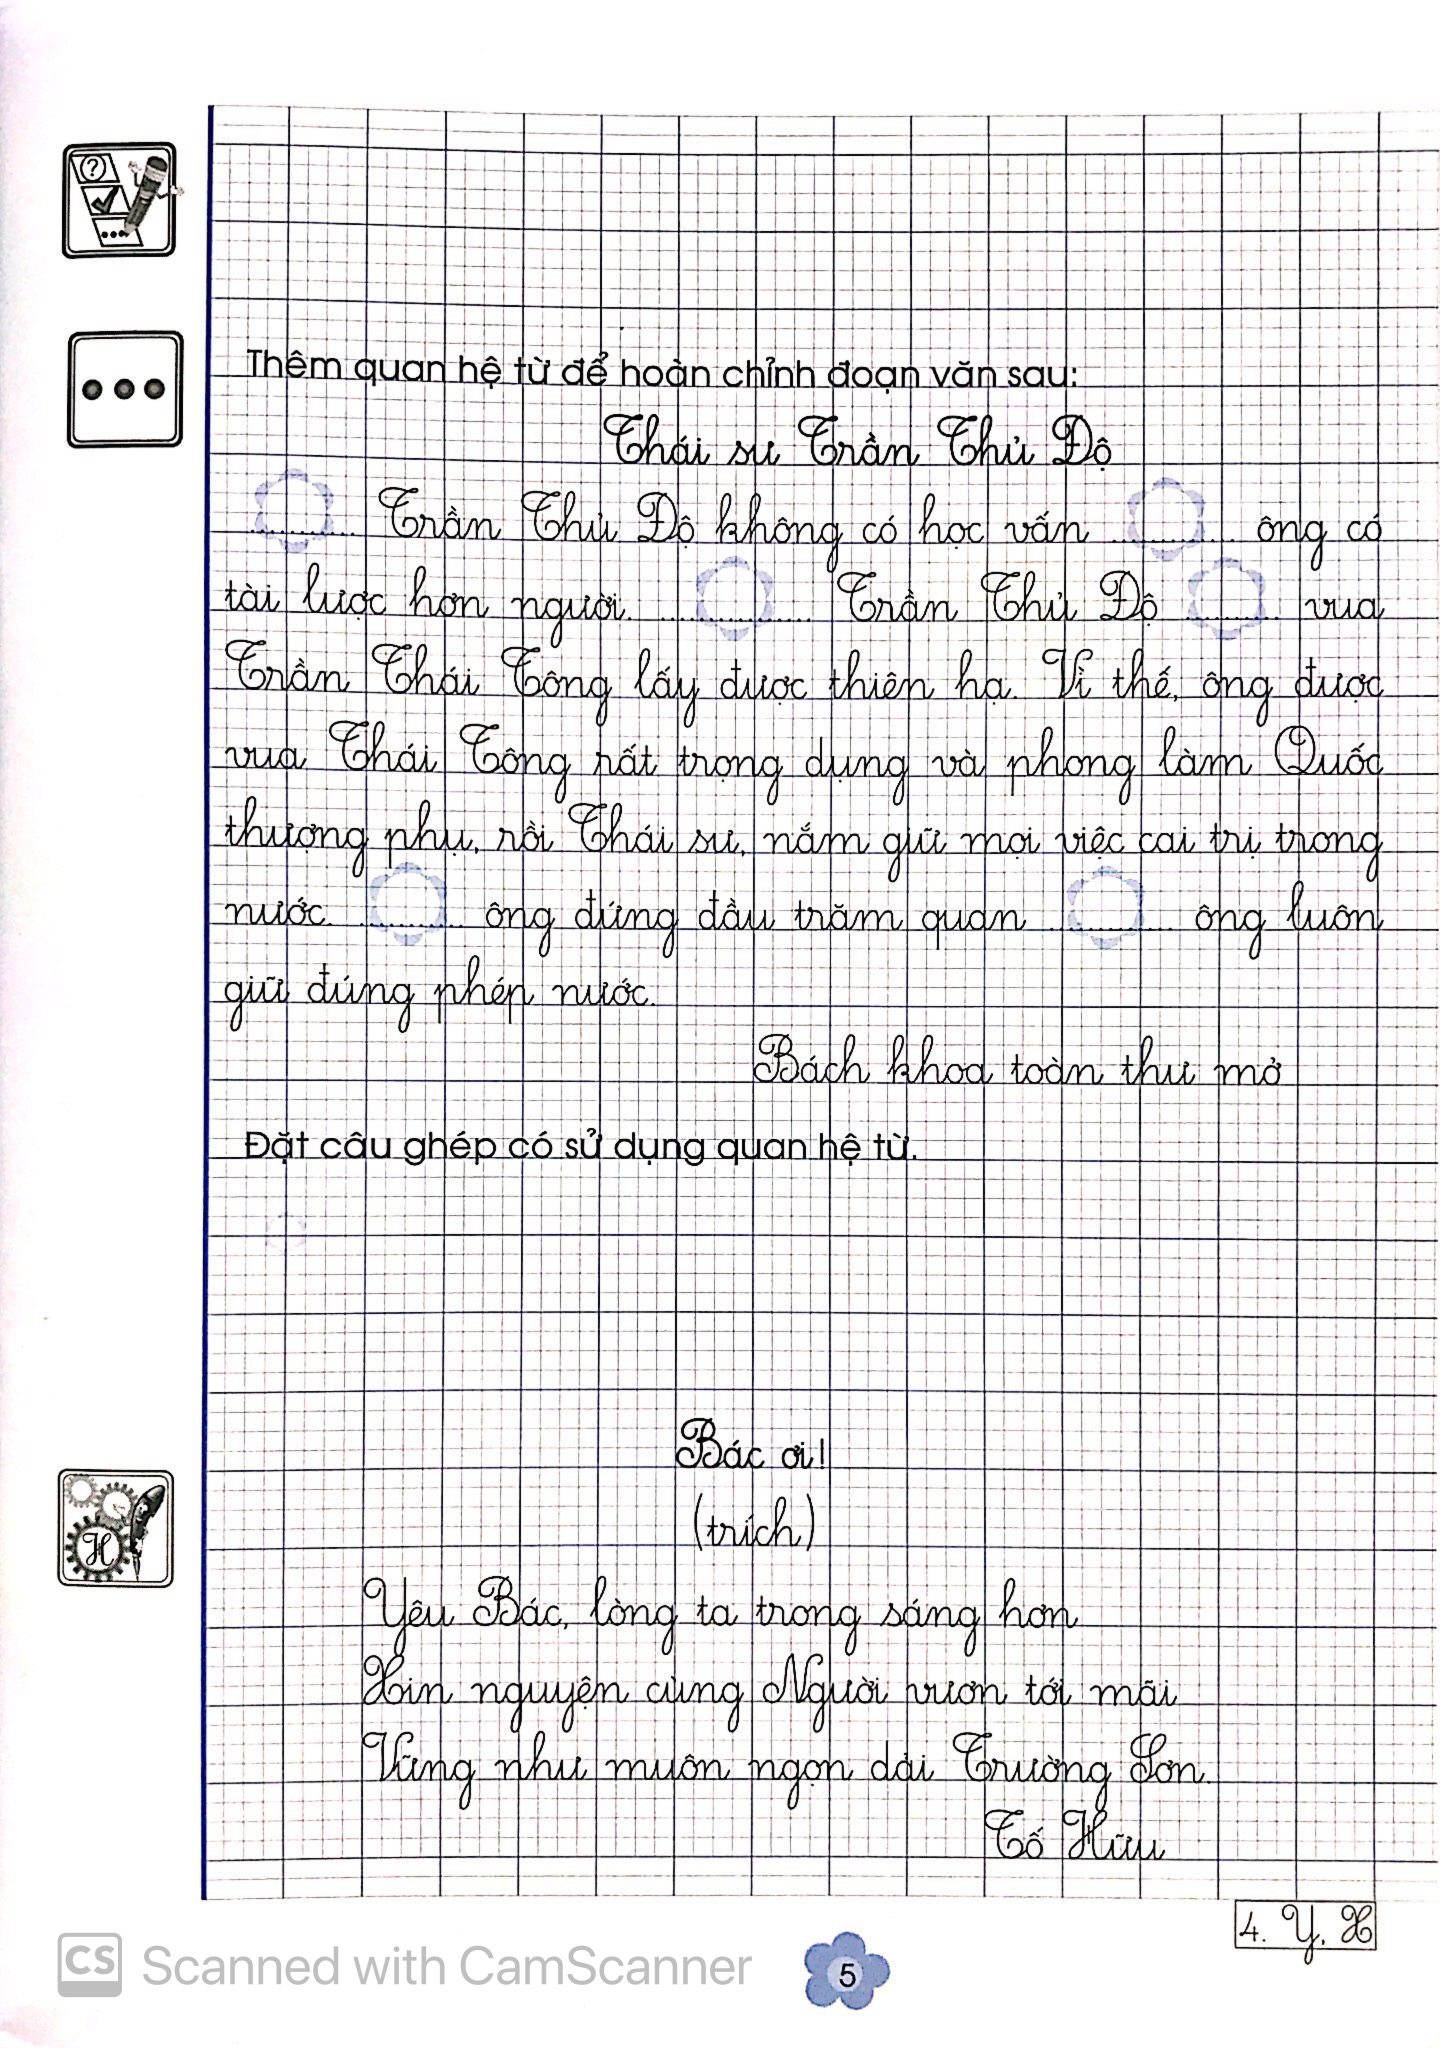 Thêm quan hệ từ để hoàn chỉnh đoạn văn sau:
Thái sư Trần Thủ Độ
............ Trần Thủ Độ không có học vấn ............ ông có
tài lược hơn người. ............ Trần Thủ Độ ............ vua
Trần Thái Tông lấy được thiên hạ. Vì thế, ông được
vua Thái Tông rất trọng dụng và phong làm Quốc
thượng phụ, rồi Thái sư, nắm giữ mọi việc cai trị trong
nước. ............ ông đứng đầu trăm quan ............ ông luôn
giữ đúng phép nước.
Bách khoa toàn thư mở
Đặt câu ghép có sử dụng quan hệ từ.
Bác ơi!
(trích)
H
Yêu Bác, lòng ta trong sáng hơn
Xin nguyện cùng Người vươn tới mãi
Vững như muôn ngọn dải Trường Sơn.
Tố Hữu
4. Y, X
CS Scanned with CamScanner
5